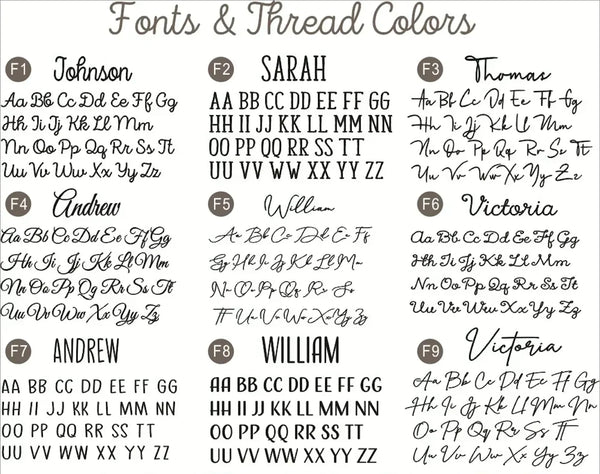 Fonts & Thread Colors
F1 Johnson
Aa Bb Cc Dd Ee Ff Gg
Hh Ii Jj Kk Ll Mm
Nn Oo Pp Qq Rr Ss Tt
Uu Vv Ww Xx Yy Zz
F2 SARAH
AA BB CC DD EE FF GG
HH II JJ KK LL MM NN
OO PP QQ RR SS TT
UU VV WW XX YY ZZ
F3 Thomas
Aa Bb Cc Dd Ee Ff Gg
Hh Ii Jj Kk Ll Mm
Nn Oo Pp Qq Rr Ss Tt
Uu Vv Ww Xx Yy Zz
F4 Andrew
Aa Bb Cc Dd Ee Ff Gg
Hh Ii Jj Kk Ll Mm
Nn Oo Pp Qq Rr Ss Tt
Uu Vv Ww Xx Yy Zz
F5 William
Aa Bb Cc Dd Ee Ff
Gg Hh Ii Jj Kk Ll Mm
Nn Oo Pp Qq Rr Ss
Tt Uu Vv Ww Xx Yy Zz
F6 Victoria
Aa Bb Cc Dd Ee Ff Gg
Hh Ii Jj Kk Ll Mm
Nn Oo Pp Qq Rr Ss Tt
Uu Vv Ww Xx Yy Zz
F7 ANDREW
AA BB CC DD EE FF GG
HH II JJ KK LL MM NN
OO PP QQ RR SS TT
UU VV WW XX YY ZZ
F8 WILLIAM
AA BB CC DD EE FF GG
HH II JJ KK LL MM NN
OO PP QQ RR SS TT
UU VV WW XX YY ZZ
F9 Victoria
Aa Bb Cc Dd Ee Ff Gg
Hh Ii Jj Kk Ll Mm Nn
Oo Pp Qq Rr Ss Tt
Uu Vv Ww Xx Yy Zz